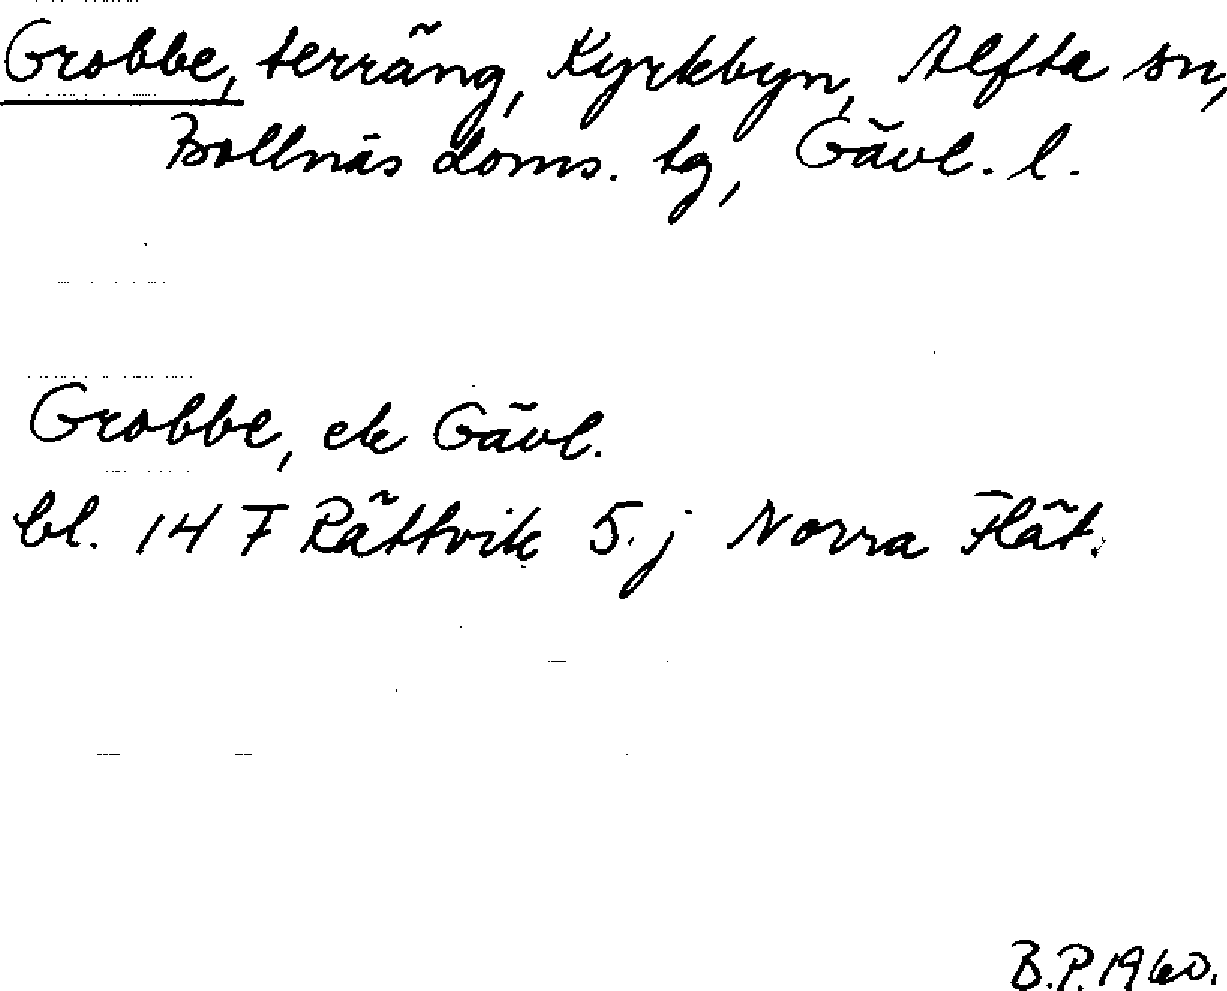 Grobbe, terräng, Kyrkbyn, Alfta sn,
Bollnäs doms. tg, Gävl. l.
Grobbe, ek Gävl.
bl. 147 Rättvik 5. j Norra Flät.
B.P. 1960.